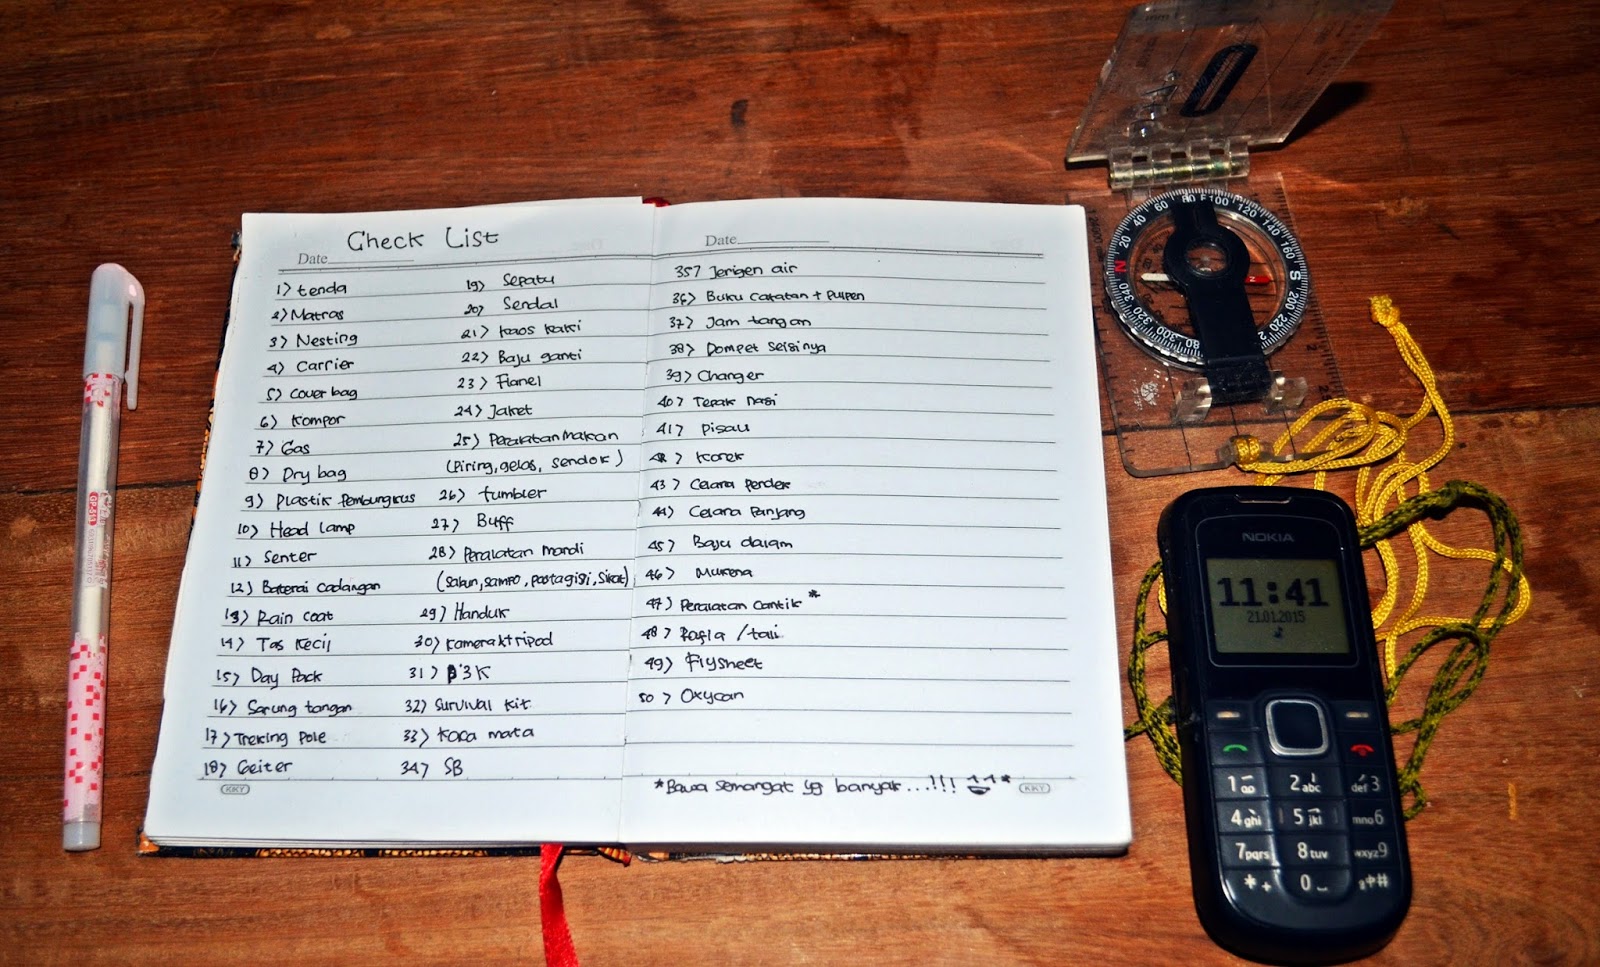 Check List
Date
1) tenda
2) Matras
3) Nesting
4) Carrier
5) cover bag
6) Kompor
7) Gas
8) Dry bag
9) Plastik Pembungkus
10) Head lamp
11) Senter
12) Baterai Cadangan
13) Rain Coat
14) Tas Kecil
15) Day Pack
16) Sarung tangan
17) Treking Pole
18) Geiter
KKY
19) Sepatu
20) Sendal
21) Kaos Kaki
22) Baju ganti
23) Flanel
24) Jaket
25) Peralatan Makan
(Piring, gelas, sendok)
26) tumbler
27) Buff
28) Peralatan Mandi
(Sabun, sampo, pasta gigi, Sikat)
29) Handuk
30) Kamera & tripod
31) P3K
32) Survival Kit
33) Kaca mata
34) SB
Date
35) Jerigen air
36) Buku Catatan + Pulpen
37) Jam tangan
38) Dompet seisinya
39) Changer
40) Tepak Nasi
41) Pisau
42) Korek
43) Celana Pendek
44) Celana Panjang
45) Baju dalam
46) Mukena
47) Peralatan Cantik *
48) Rafia / tali
49) Flysheet
50) Oxycan
*Bawa Semangat yg banyak...!!! ^^*
KKY
NOKIA
11:41
21.01.2015
1
2abc
def3
4ghi
5jkl
mno6
7pqrs
8tuv
wxyz9
*+
0
#